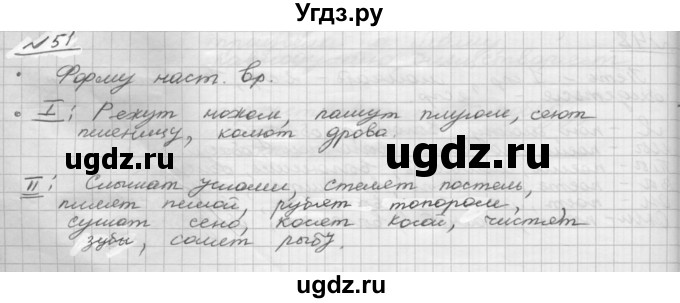 Угдз.ру
№51
• Форму наст. вр.
• I: Режут ножом, пашут плугом, сеют
пшеницу, колют дрова.
ugdz.ru
ugdz.ru
II: Слышат ушами, стелют постель,
пилят пилой, рубят топором,
сушат сено, косят косой, чистят
зубы, солят рыбу.
ugdz.ru
ugdz.ru